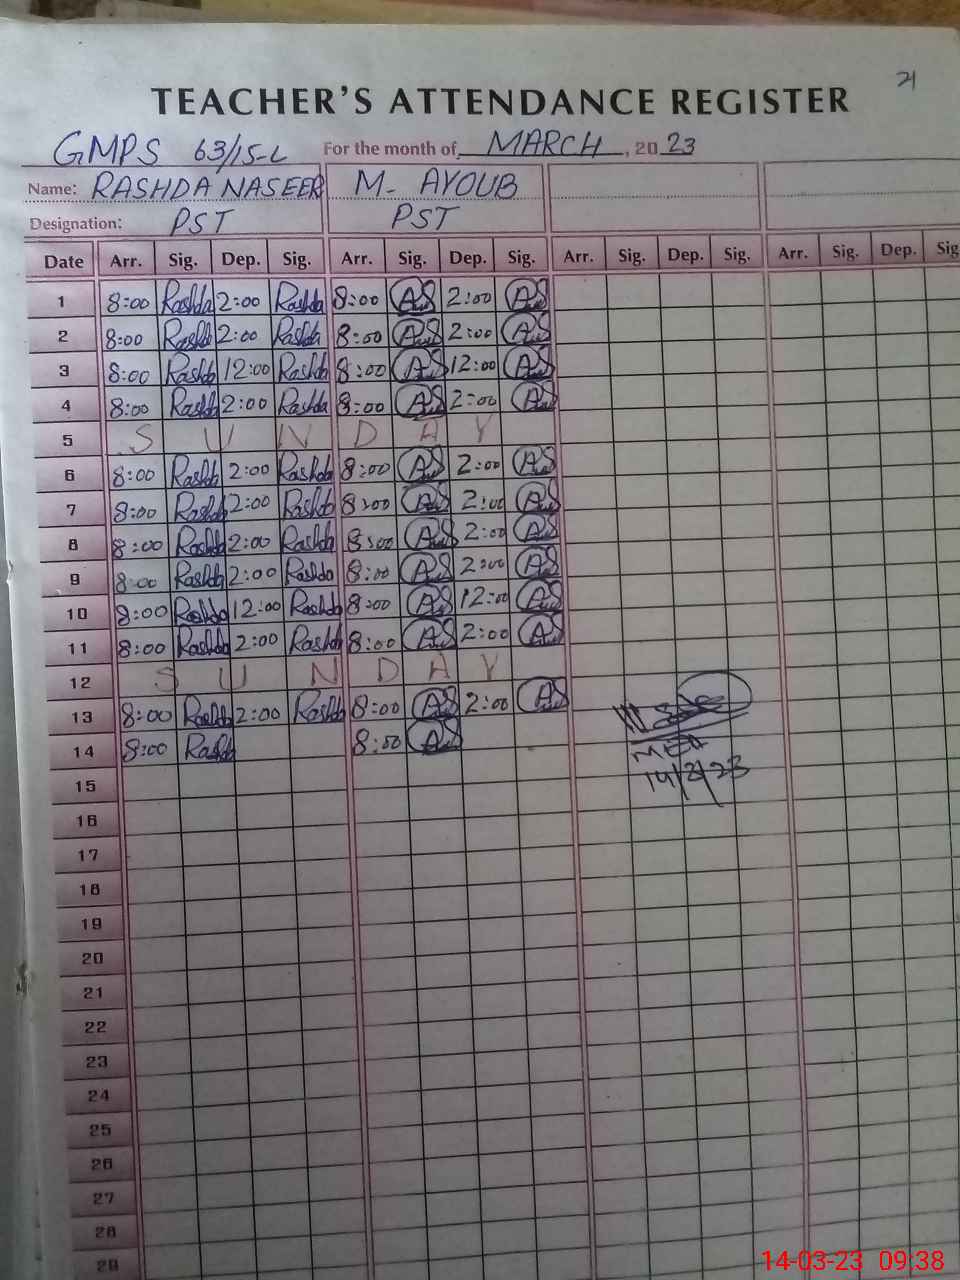 21
TEACHER'S ATTENDANCE REGISTER
GMPS 63/15-L For the month of MARCH, 2023
Name: RASHDA NASEER M. AYOUB
Designation: PST PST
Date Arr. Sig. Dep. Sig. Arr. Sig. Dep. Sig. Arr. Sig. Dep. Sig. Arr. Sig. Dep. Sig
1 8:00 Rashda 2:00 Rashda 8:00 2:00
2 8:00 Rashd 2:00 Rashda 8:00 2:00
3 8:00 Rashda 12:00 Rashda 8:00 12:00
4 8:00 Rashd 2:00 Rashda 8:00 2:00
5 S U N D A Y
6 8:00 Rashda 2:00 Rashda 8:00 2:00
7 8:00 Rashda 2:00 Rashda 8:00 2:00
8 8:00 Rashda 2:00 Rashda 8:00 2:00
9 8:00 Rashda 2:00 Rashda 8:00 2:00
10 8:00 Rashda 12:00 Rashda 8:00 12:00
11 8:00 Rashda 2:00 Rashda 8:00 2:00
12 S U N D A Y
13 8:00 Rashda 2:00 Rashda 8:00 2:00
14 8:00 Rashda 8:00
14/3/23
15
16
17
18
19
20
21
22
23
24
25
26
27
28
29
14-03-23 09:38